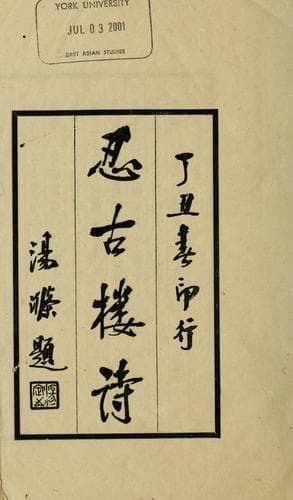 YORK UNIVERSITY
JUL 03 2001
EAST ASIAN STUDIES
丁丑春印行
忍古楼诗
湯滌題